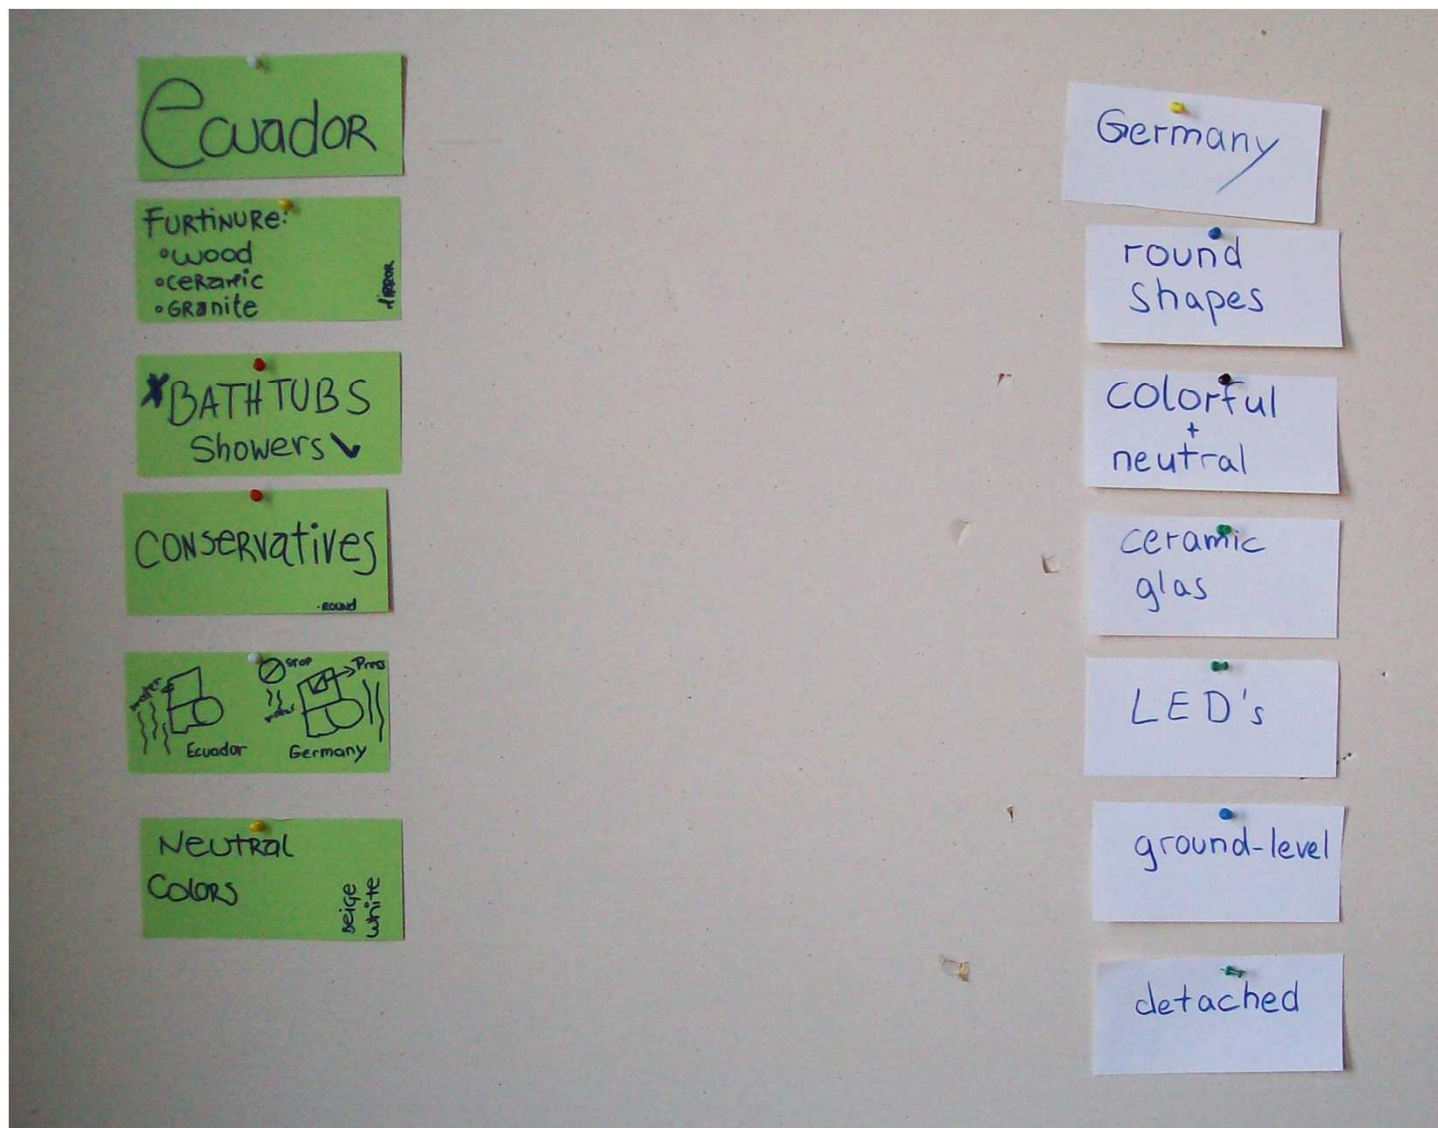 Ecuador
FURTINURE:
wood
CERAMIC
GRANITE
MIRROR
x BATHTUBS
Showers
CONSERVATIVES
· ROUND
water
Ecuador
STOP
Press
water
Germany
NEUTRAL
COLORS
BEIGE
white
Germany
round
shapes
colorful
+
neutral
ceramic
glas
LED's
ground-level
detached